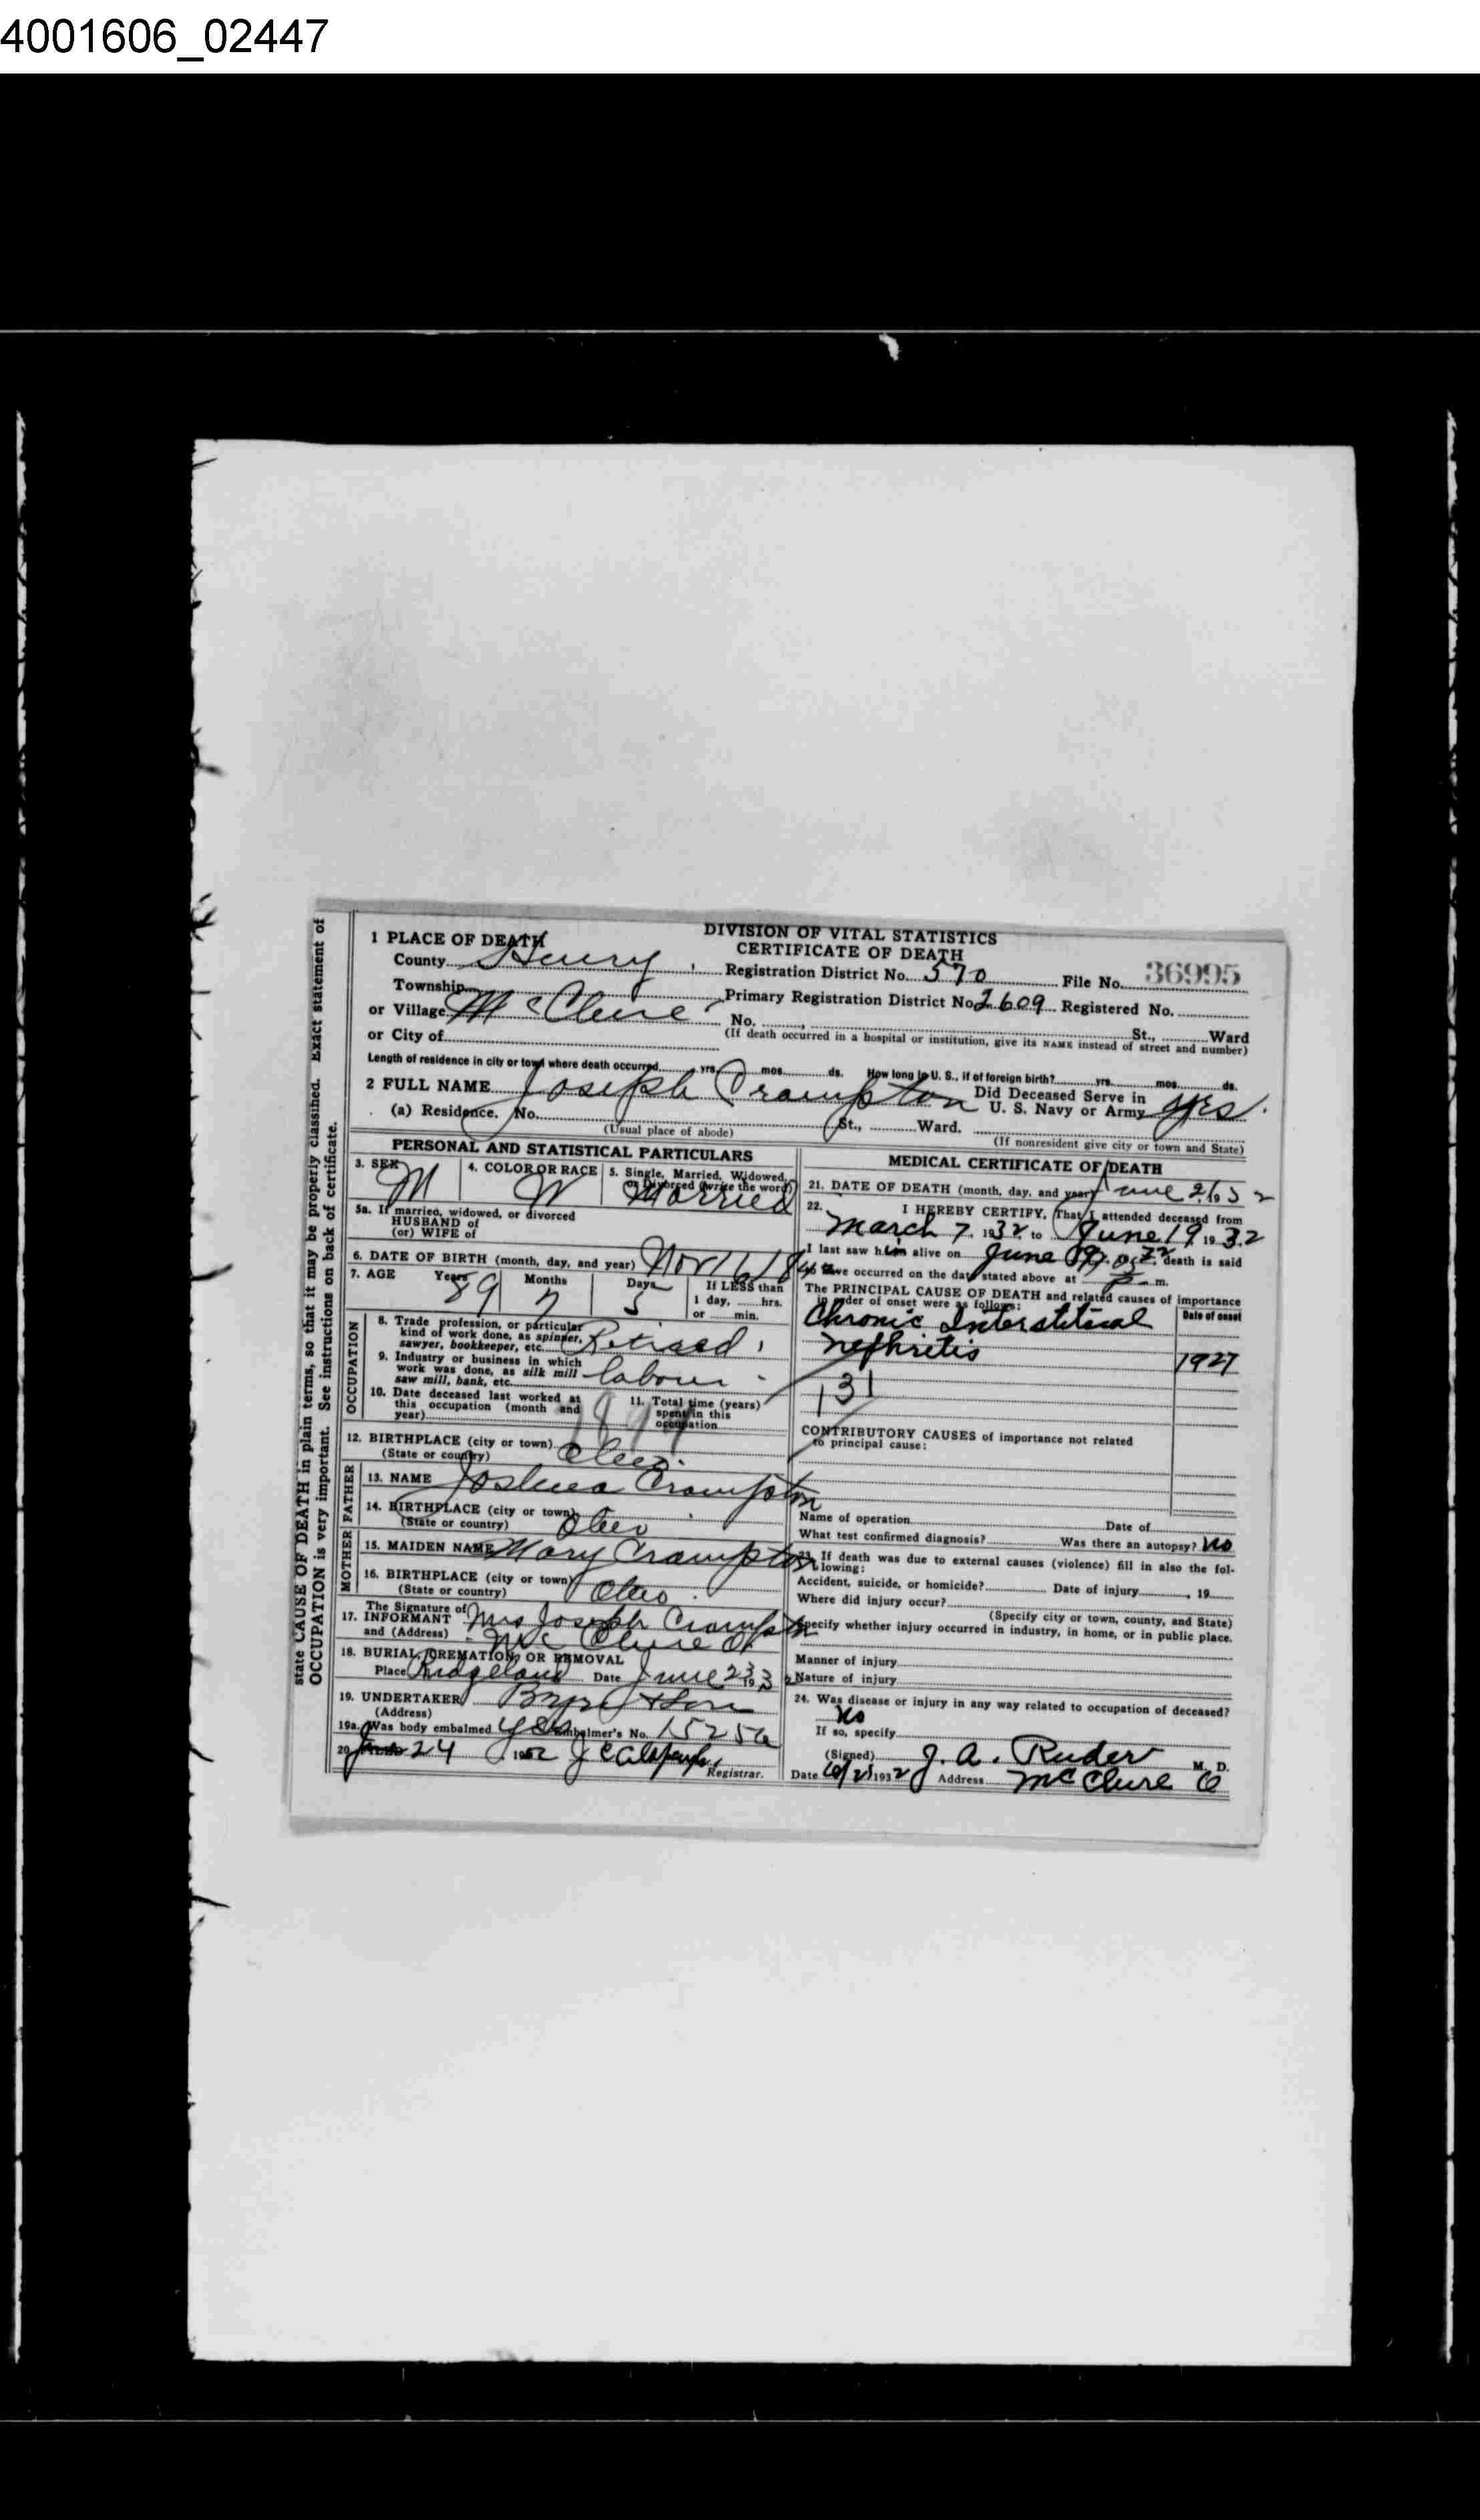 4001606_02447
DIVISION OF VITAL STATISTICS
CERTIFICATE OF DEATH
1 PLACE OF DEATH
County Henry Registration District No. 570 File No. 36995
Township Primary Registration District No. 2609 Registered No.
or Village McClure No. St., Ward
or City of (If death occurred in a hospital or institution, give its NAME instead of street and number)
Length of residence in city or town where death occurred yrs. mos. ds. How long in U. S., if of foreign birth? yrs. mos. ds.
2 FULL NAME Joseph Crampton Did Deceased Serve in U. S. Navy or Army yes.
(a) Residence. No. St., Ward.
(Usual place of abode) (If nonresident give city or town and State)
PERSONAL AND STATISTICAL PARTICULARS
3. SEX M 4. COLOR OR RACE W 5. Single, Married, Widowed, or Divorced (write the word) Married
5a. If married, widowed, or divorced
HUSBAND of
(or) WIFE of
6. DATE OF BIRTH (month, day, and year) Nov 16 1842
7. AGE Years 89 Months 7 Days 5 If LESS than
1 day, hrs.
or min.
OCCUPATION
8. Trade, profession, or particular
kind of work done, as spinner,
sawyer, bookkeeper, etc. Retired
9. Industry or business in which
work was done, as silk mill
saw mill, bank, etc. labour
10. Date deceased last worked at
this occupation (month and
year)
11. Total time (years)
spent in this
occupation
12. BIRTHPLACE (city or town) Ohio
(State or country)
FATHER
13. NAME Joshua Crampton
14. BIRTHPLACE (city or town)
(State or country) Ohio
MOTHER
15. MAIDEN NAME Mary Crampton
16. BIRTHPLACE (city or town)
(State or country) Ohio
The Signature of
17. INFORMANT Mrs Joseph Crampton
and (Address) McClure O
18. BURIAL, CREMATION, OR REMOVAL
Place Ridgeland Date June 23 1932
19. UNDERTAKER & Son
(Address)
19a. Was body embalmed yes Embalmer's No. 1525a
20. 24 1932 Registrar.
MEDICAL CERTIFICATE OF DEATH
21. DATE OF DEATH (month, day, and year) June 21 1932
22. I HEREBY CERTIFY, That I attended deceased from
March 7, 1932, to June 19 1932
I last saw him alive on June 19, 1932 death is said
to have occurred on the date stated above at P. m.
The PRINCIPAL CAUSE OF DEATH and related causes of importance
in order of onset were as follows: Date of onset
Chronic Interstitical
nephritis 1927
131
CONTRIBUTORY CAUSES of importance not related
to principal cause:
Name of operation Date of
What test confirmed diagnosis? Was there an autopsy? No
23. If death was due to external causes (violence) fill in also the fol-
lowing:
Accident, suicide, or homicide? Date of injury , 19
Where did injury occur?
(Specify city or town, county, and State)
Specify whether injury occurred in industry, in home, or in public place.
Manner of injury
Nature of injury
24. Was disease or injury in any way related to occupation of deceased?
No
If so, specify
(Signed) J. A. Ruder M. D.
Date 1932 Address McClure O
state CAUSE OF DEATH in plain terms, so that it may be properly classified. Exact statement of
OCCUPATION is very important. See instructions on back of certificate.